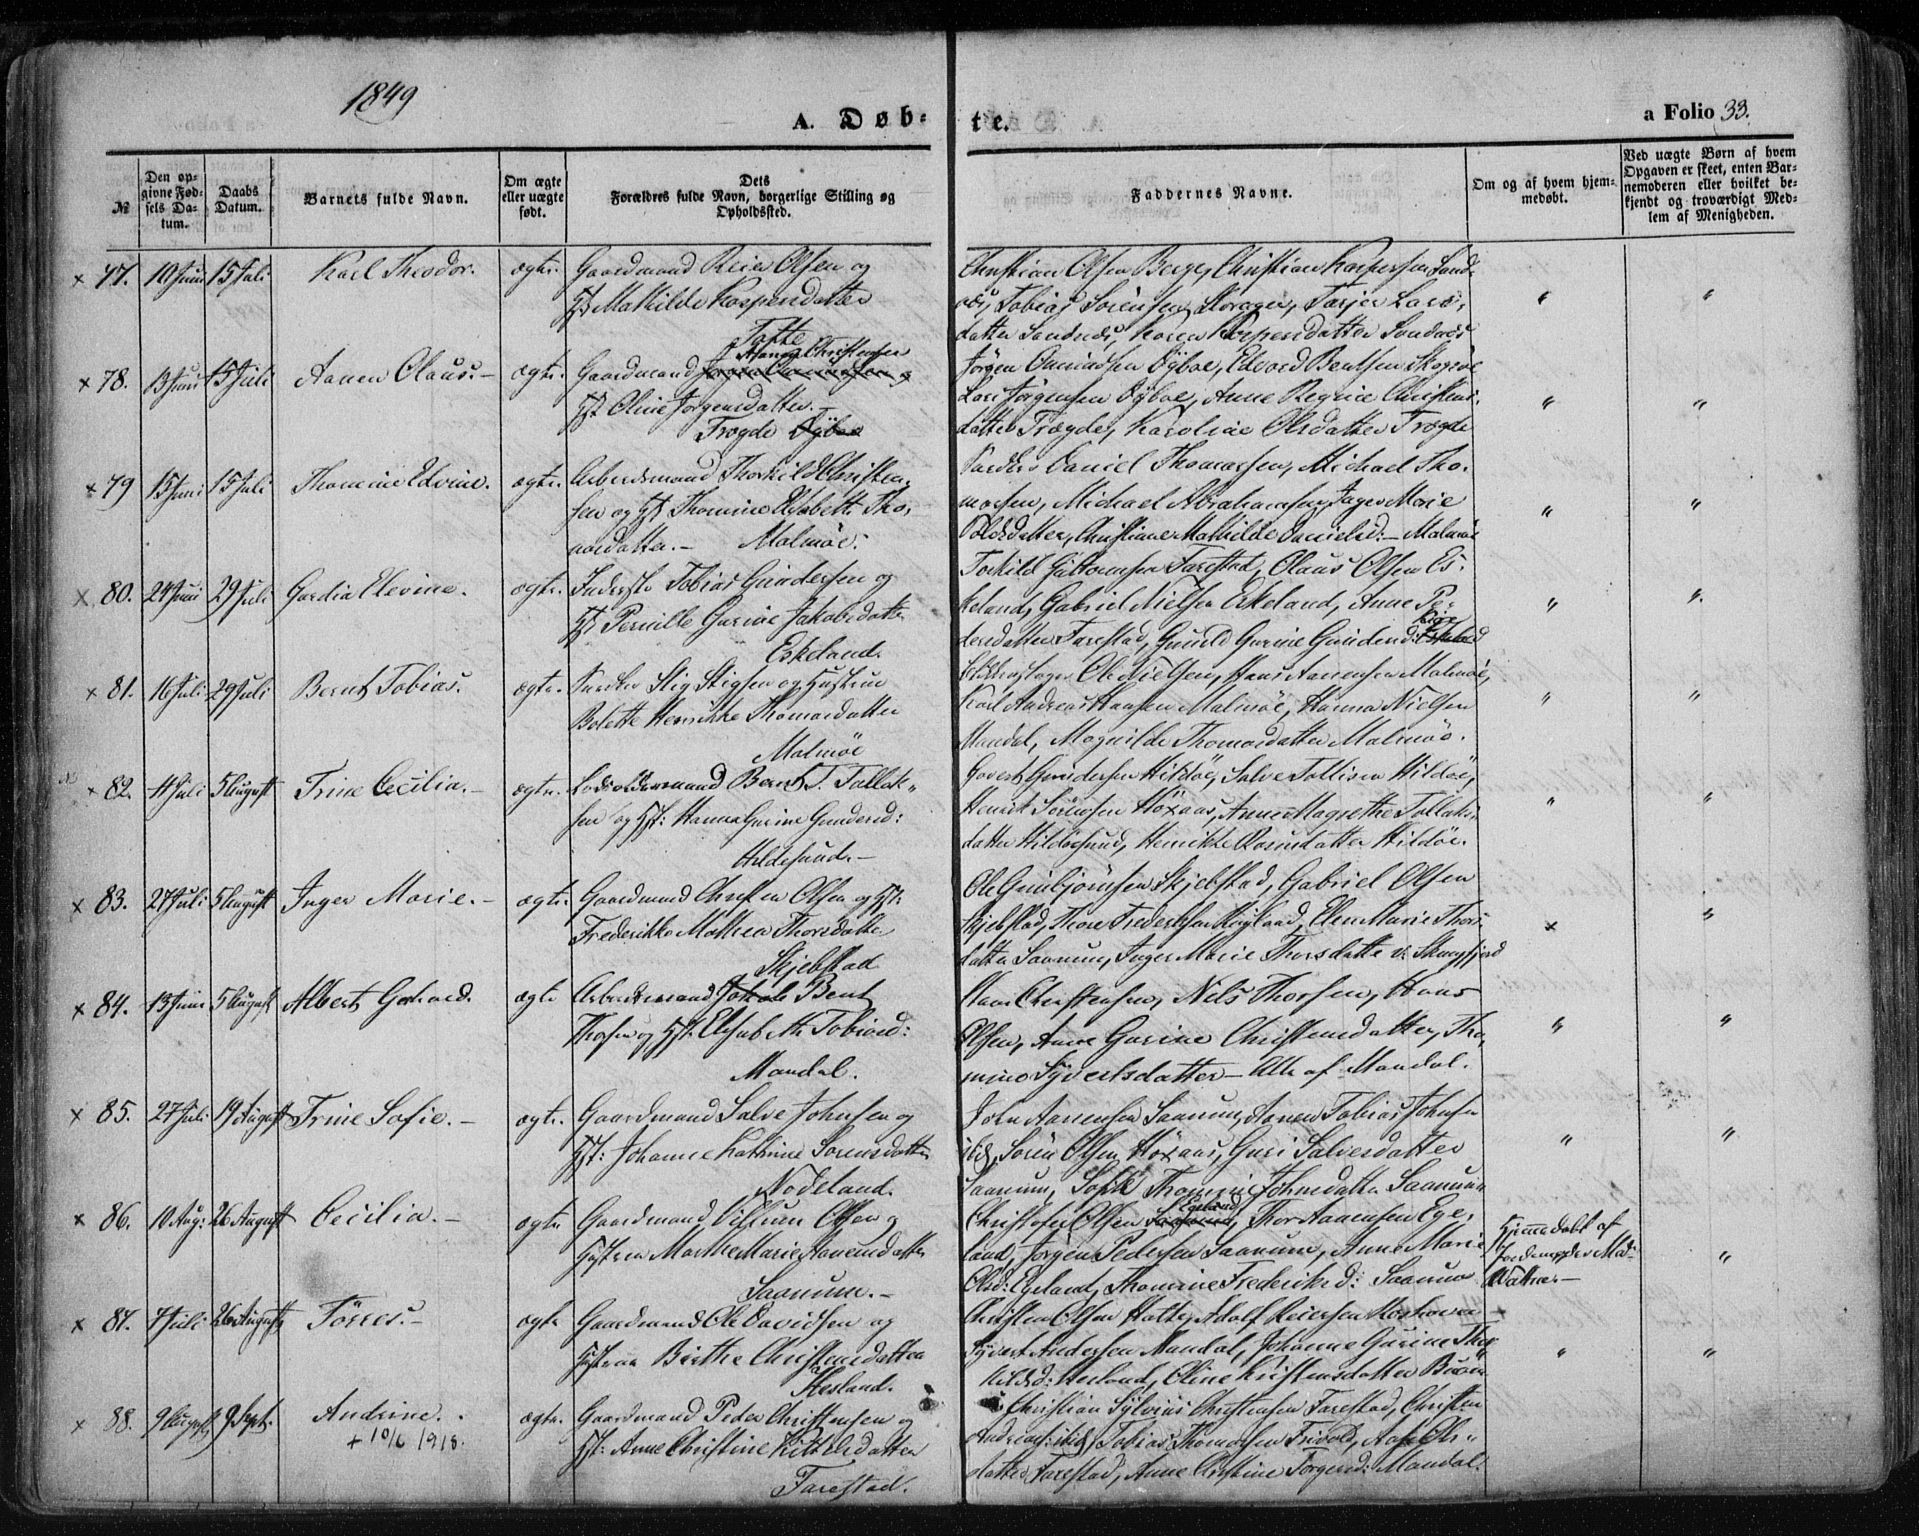 1849
A. Døb-
te.
a Folio 33.
№
Den op-
givne Fød-
sels Da-
tum.
Daabs
Datum.
Barnets fulde Navn.
Om ægte
eller uægte
født.
Dets
Forældres fulde Navn, borgerlige Stilling og
Opholdssted.
Faddernes Navne.
Om og af hvem hjem-
medøbt.
Ved uægte Børn af hvem
Opgaven er skeet, enten Bar-
nemoderen eller hvilket be-
kjendt og troværdigt Med-
lem af Menigheden.
× 77. 10 Juni 15 Juli Karl Theodor. ægte. Gaardmand Reier Olsen og
Hst Mathilde Kaspersdatter
Christian Olsen Berge, Christian Kaspersen Sand-
næs, Tobias Sörensen, Tarjer Lars-
datter Sandnæs, Karen Kaspersdatter Sandnæs
× 78. 13 Juni 15 Juli Aanen Olaus.- ægte. Gaardmand Aanen Christensen
Hst. Oline Jorgensdatter.
Trægde Öÿboe
Jörgen Öÿboe, Edvard Bentsen Skogsöe
Lars Jörgensen Öÿboe, Anne Regine Christens-
datter Trægde, Karoline Olsdatter Trægde
× 79 15 Juni 15 Juli Thomine Edvine. ægte. Arbeidsmand Thorkild Christen-
sen og Hst Thomine Elisabeth Tho-
masdatter.- Malmöe.
Daniel Thomassen, Michael Tho-
massen, Michael Abrahamsen, Inger Marie
Christiane Mathilde Danielsd:- Malmöe
× 80. 24 Juni 29 Juli Gurdia Elevine. ægte. Inderste Tobias Gundersen og
Hst Pernille Gurine Jakobsdatter
Eskeland.
Torkild Guttormsen Farestad, Olaus Olsen Es-
keland, Gabriel Nielsen Eskeland, Anne Pe-
dersdatter Farestad, Gunild Gurine Gundersd:
× 81. 16 Juli 29 Juli Bernt Tobias. ægte. Stig Stigsen og Hustrue
Bolette Henrikke Thomasdatter
Malmöe
Ole Nielsen, Hans Aanensen Malmöe,
Karl Andreas Hansen Malmöe, Hanna Nielsen
Mandal, Magnilde Thomasdatter Malmöe.
× 82. 4 Juli 5 August Trine Cecilia.- ægte. Lodsoldermand Bernt T. Tallak-
sen og Hst: Hanna Gurine Gundersd:
Hildesund.-
Govert Gundersen Hildöe, Salve Tollisen Hildöe,
Henrik Sörensen Höxaas, Anne Magrethe Tallaks-
datter Hildöesund, Henrikke Hildöe.
× 83. 27 Juli 5 August Inger Marie.- ægte. Gaardmand Christen Olsen og Hst:
Frederikke Mathea Thorsdatter
Skjebstad
Ole Gunbjörnsen Skjebstad, Gabriel Olsen
Skjebstad, Thore Frederiksen Röigland, Elen Marie Thors-
datter Saanum, Inger Marie Thorsdatter v: Skogsfjord
×
× 84. 13 Juni 5 August Albert Gerhard. ægte Arbeidsmand Jakob Bent
Thorsen og Hst: Elisabeth Tobiasd:
Mandal.
Christensen, Nils Thorsen, Hans
Olsen, Anne Gurine Christensdatter, Tho-
mine Sÿvertsdatter- Alle af Mandal.
× 85. 27 Juli 19 August Trine Sofie.- ægte. Gaardmand Salve Johnsen og
Hst: Johanne Kathrine Sorensdatter
Nodeland.
John Aanensen Saanum, Aanen Tobias Johnsen
ibid, Sörén Olsen Höxaas, Guri Salvesdatter
Saanum, Sofie Thomine Johnsdatter Saanum
× 86. 10 Aug: 26 August Cecilia.- ægte Gaardmand Villum Olsen og
Hustrue Marthe Marie Aanensdatter
Saanum.-
Christofer Olsen Egeland, Thor Aanensen Ege-
land, Jörgen Pedersen Saanum, Anne Marie
Olsd: Egeland, Thomine Frederiksd: Saanum
Hjemmedöbt af
Jordemoder Mad:
Wattne.-
× 87. 4 Juli 26 August Törres.- ægte Gaardmand Ole Davidsen og
Hustrue Birthe Christensdatter
Hesland.
Christen Olsen Hatte, Adolf Reiersen Hoshoven-
Sÿvert Andersen Mandal, Johanne Gurine Thor-
kildsd: Hesland, Oline Kristensdatter
× 88. 9 August 9 Sept. Andrine.
+ 10/6 1918.
ægte. Gaardmand Peder Christensen og
Hst: Anne Christine Kittelsdatter
Farestad.
Christian Sÿlvius Christensen Farestad, Christen
Andreas ibid, Tobias Thomassen Frivold, Aase Ols-
datter Farestad, Anne Christine Torgersd: Mandal.